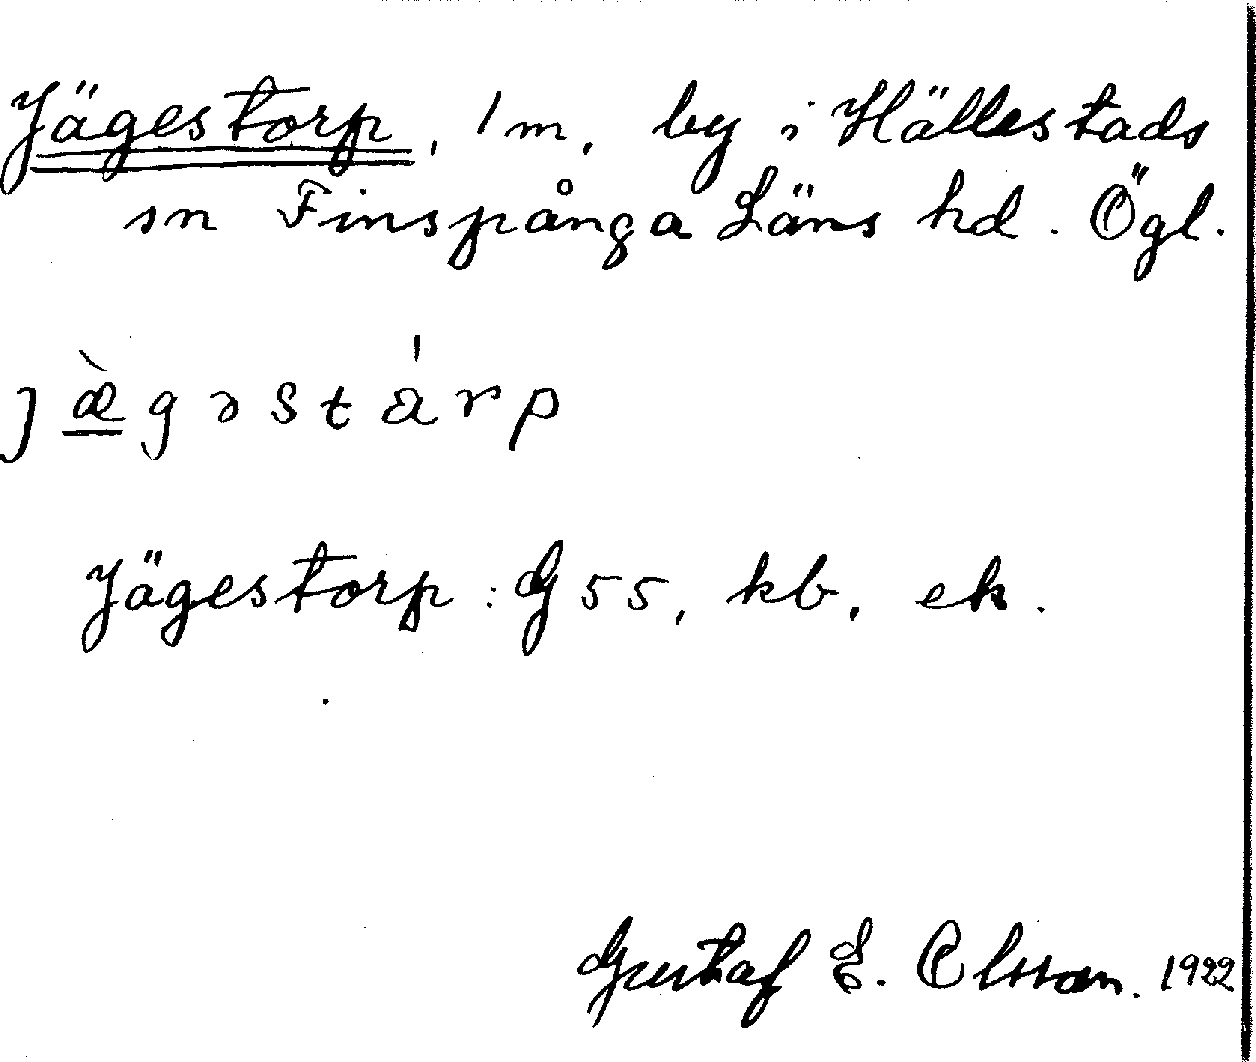 Jägestorp, 1 m, by i Hällestads
sn Finspånga Läns hd. Ögl.
jæ̀gəstárp
Jägestorp: G 55, kb, ek.
Gustaf E. Olsson. 1922